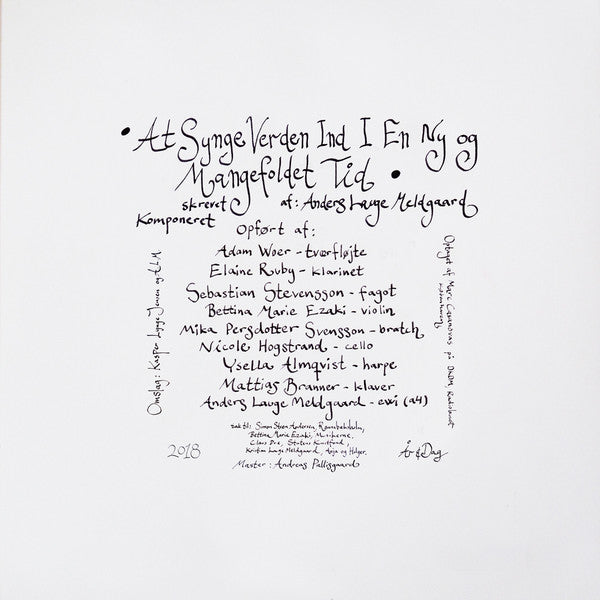 • At Synge Verden Ind I En Ny og
Mangefoldet Tid •
skrevet af: Anders Lauge Meldgaard
Komponeret
Opført af:
Adam Woer - tværfløjte
Elaine Ruby - klarinet
Sebastian Stevensson - fagot
Bettina Marie Ezaki - violin
Mika Persdotter Svensson - bratch
Nicole Hogstrand - cello
Ysella Almqvist - harpe
Mattias Branner - klaver
Anders Lauge Meldgaard - ewi (a4)
Tak til: Simon Steen-Andersen,
Bettina Marie Ezaki, Musikerne,
Claus Due, Statens Kunstfond,
Kristian Lauge Meldgaard, Anja og Hilger.
Master: Andreas Pallisgaard
2018
År & Dag
Omslag: Kasper Lynge Jensen og A.L.M.
Optaget af Marc Casanovas på DKDM, Radiohuset